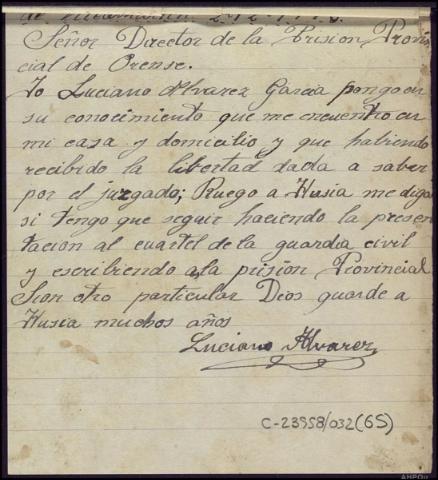 Señor Director de la Prision Provin
cial de Orense.
Yo Luciano Alvarez Garcia pongo en
su conocimiento que me encuentro en
mi casa y domicilio y que habiendo
recibido la libertad dada a saber
por el juzgado; Ruego a Husia me diga
si tengo que seguir haciendo la presen
tacion al cuartel de la guardia civil
y escribiendo a la prisión Provincial
Sion otro particular Dios guarde a
Husia muchos años
Luciano Alvarez
C-23958/032(65)
AHPOu